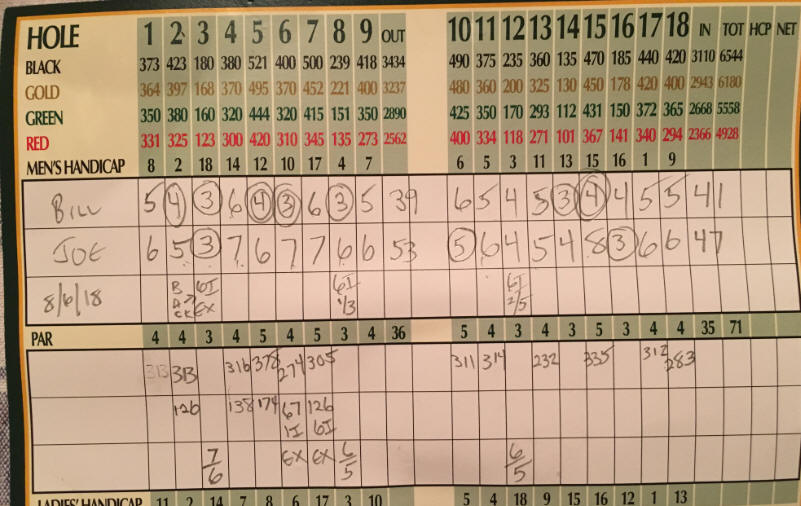 HOLE 1 2 3 4 5 6 7 8 9 OUT 10 11 12 13 14 15 16 17 18 IN TOT HCP NET
BLACK 373 423 180 380 521 400 500 239 418 3434 490 375 235 360 135 470 185 440 420 3110 6544
GOLD 364 397 168 370 495 370 452 221 400 3237 480 360 200 325 130 450 178 420 400 2943 6180
GREEN 350 380 160 320 444 320 415 151 350 2890 425 350 170 293 112 431 150 372 365 2668 5558
RED 331 325 123 300 420 310 345 135 273 2562 400 334 118 271 101 367 141 340 294 2366 4928
MEN'S HANDICAP 8 2 18 14 12 10 17 4 7 6 5 3 11 13 15 16 1 9
BILL 5 4 3 6 4 3 6 3 5 39 6 5 4 5 3 4 4 5 5 41
JOE 6 5 3 7 6 7 7 6 6 53 5 6 4 5 4 8 3 6 6 47
8/6/18 6I EX 6I 1/3 6I 2/5
PAR 4 4 3 4 5 4 5 3 4 36 5 4 3 4 3 5 3 4 4 35 71
313 313 316 378 274 305 311 314 232 335 312 283
126 138 174 67 1I 126 6I
7/6 EX EX 6/5 6/5
LADIES' HANDICAP 11 2 14 7 8 6 17 3 10 5 4 18 9 15 16 12 1 13